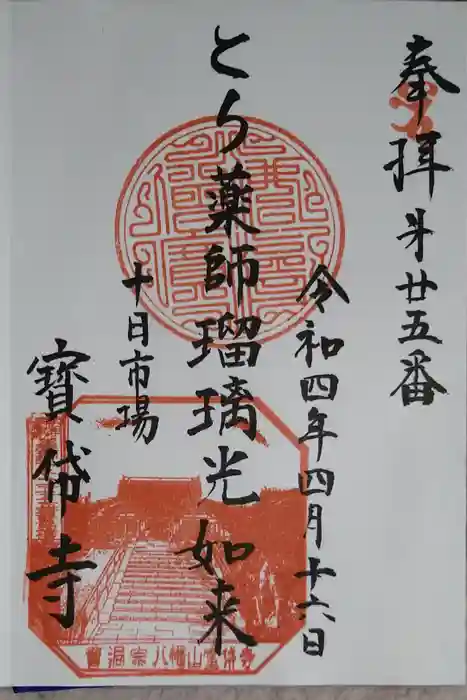 奉拝 第廿五番
令和四年四月十六日
とら薬師瑠璃光如来
十日市場
寳帒寺
曹洞宗八幡山宝帒寺